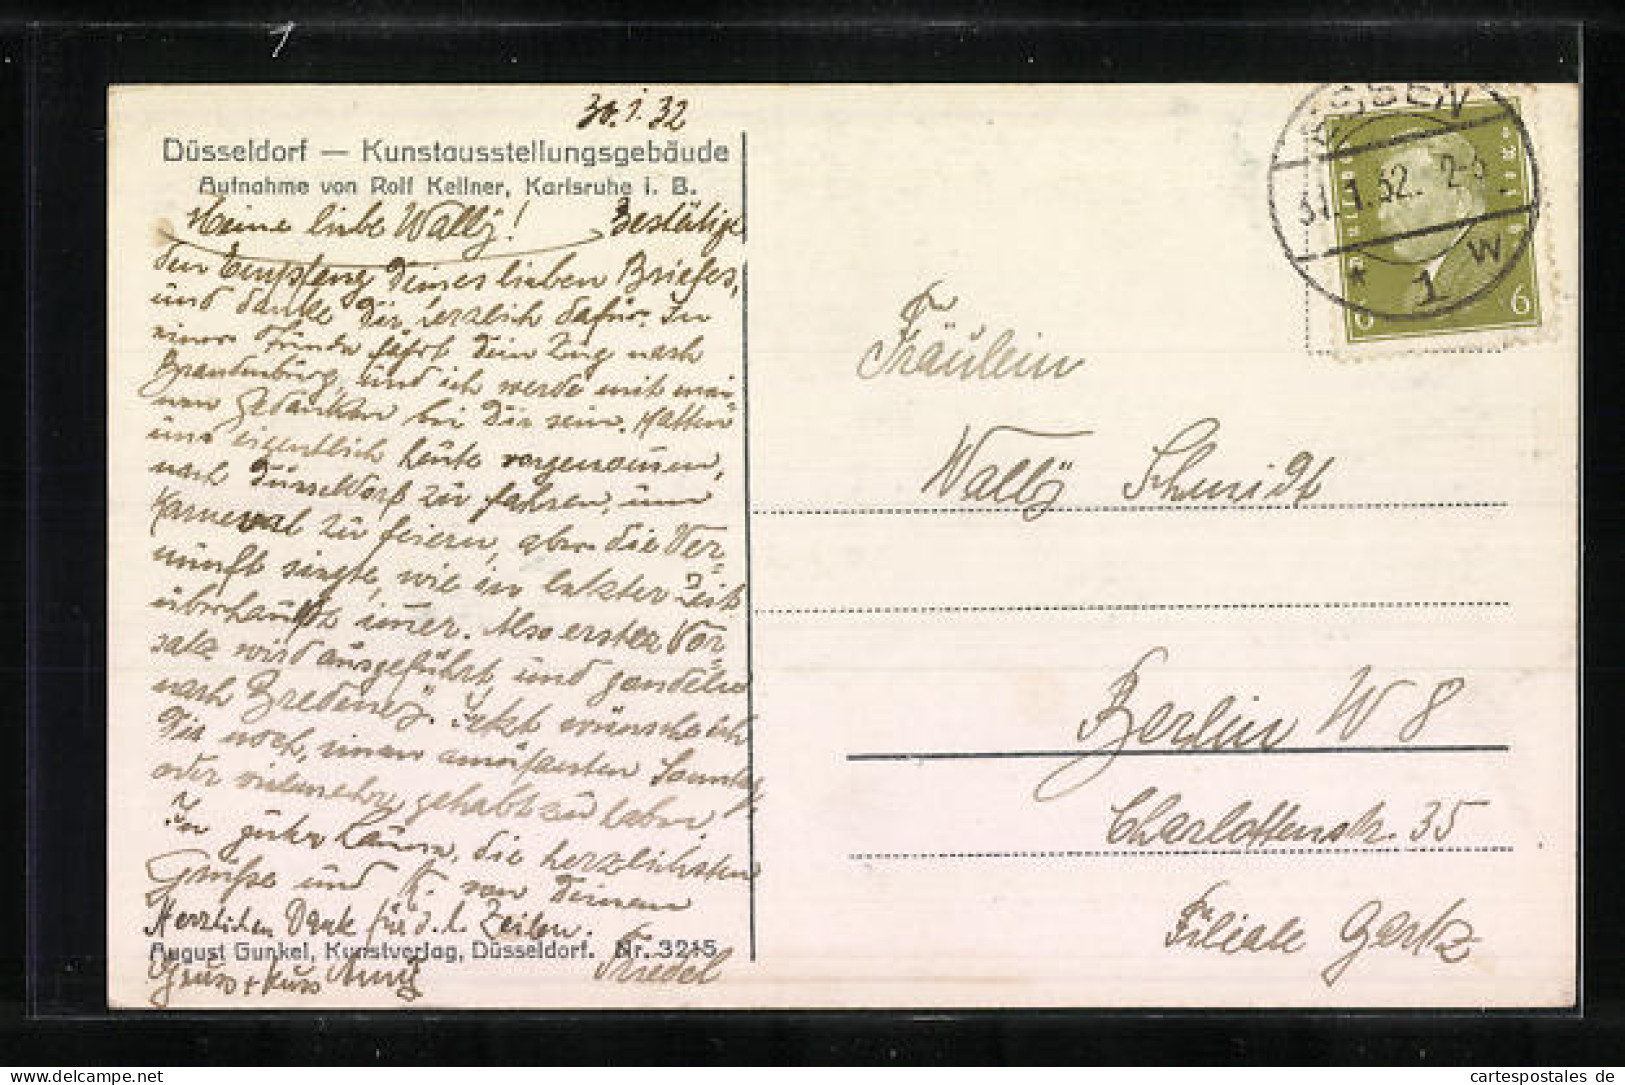 30.1.32
Düsseldorf — Kunstausstellungsgebäude
Aufnahme von Rolf Kellner, Karlsruhe i. B.
Meine liebe Wally! Bestätige
den Empfang Deines lieben Briefes,
und danke Dir herzlich dafür. In
einer Stunde fährt Dein Zug nach
Brandenburg, und ich werde mit mei
nen Gedanken bei Dir sein. Hatten
uns eigentlich heute vorgenommen,
nach Düsseldorf zu fahren, um
Karneval zu feiern, aber die Ver=
nunft siegte, wie in letzter Zeit
überhaupt immer. Also erster Vor=
satz wird ausgeführt, und
nach Bredeney. Jetzt wünsche ich
Dir noch, einen amüsanten Sonntag,
oder vielmehr gehabt zu haben.
In guter Laune, die herzlichsten
Grüße und K. von Deinem
Friedel
Herzlichen Dank für d. l. Zeilen.
August Gunkel, Kunstverlag, Düsseldorf. Nr. 3215
Gruss + Kuss
ESSEN
31.1.32. 2-3
* 1 w
Deutsches Reich
6 6
Fräulein
Wally Schmidt
Berlin W 8
Charlottenstr. 35
Filiale Gertz
www.oldthing.de
cartespostales de